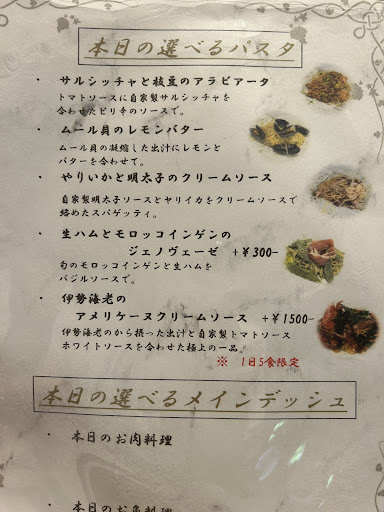 本日の選べるパスタ
・ サルシッチャと枝豆のアラビアータ
トマトソースに自家製サルシッチャを
合わせたピリ辛のソースで。
・ ムール貝のレモンバター
ムール貝の凝縮した出汁にレモンと
バターを合わせて。
・ やりいかと明太子のクリームソース
自家製明太子ソースとヤリイカをクリームソースで
絡めたスパゲッティ。
・ 生ハムとモロッコインゲンの
ジェノヴェーゼ +¥300-
旬のモロッコインゲンと生ハムを
バジルソースで。
・ 伊勢海老の
アメリケーヌクリームソース +¥1500-
伊勢海老のから摂った出汁と自家製トマトソース
ホワイトソースを合わせた極上の一品。
※ 1日5食限定
本日の選べるメインデッシュ
・ 本日のお肉料理
・ 本日のお魚料理